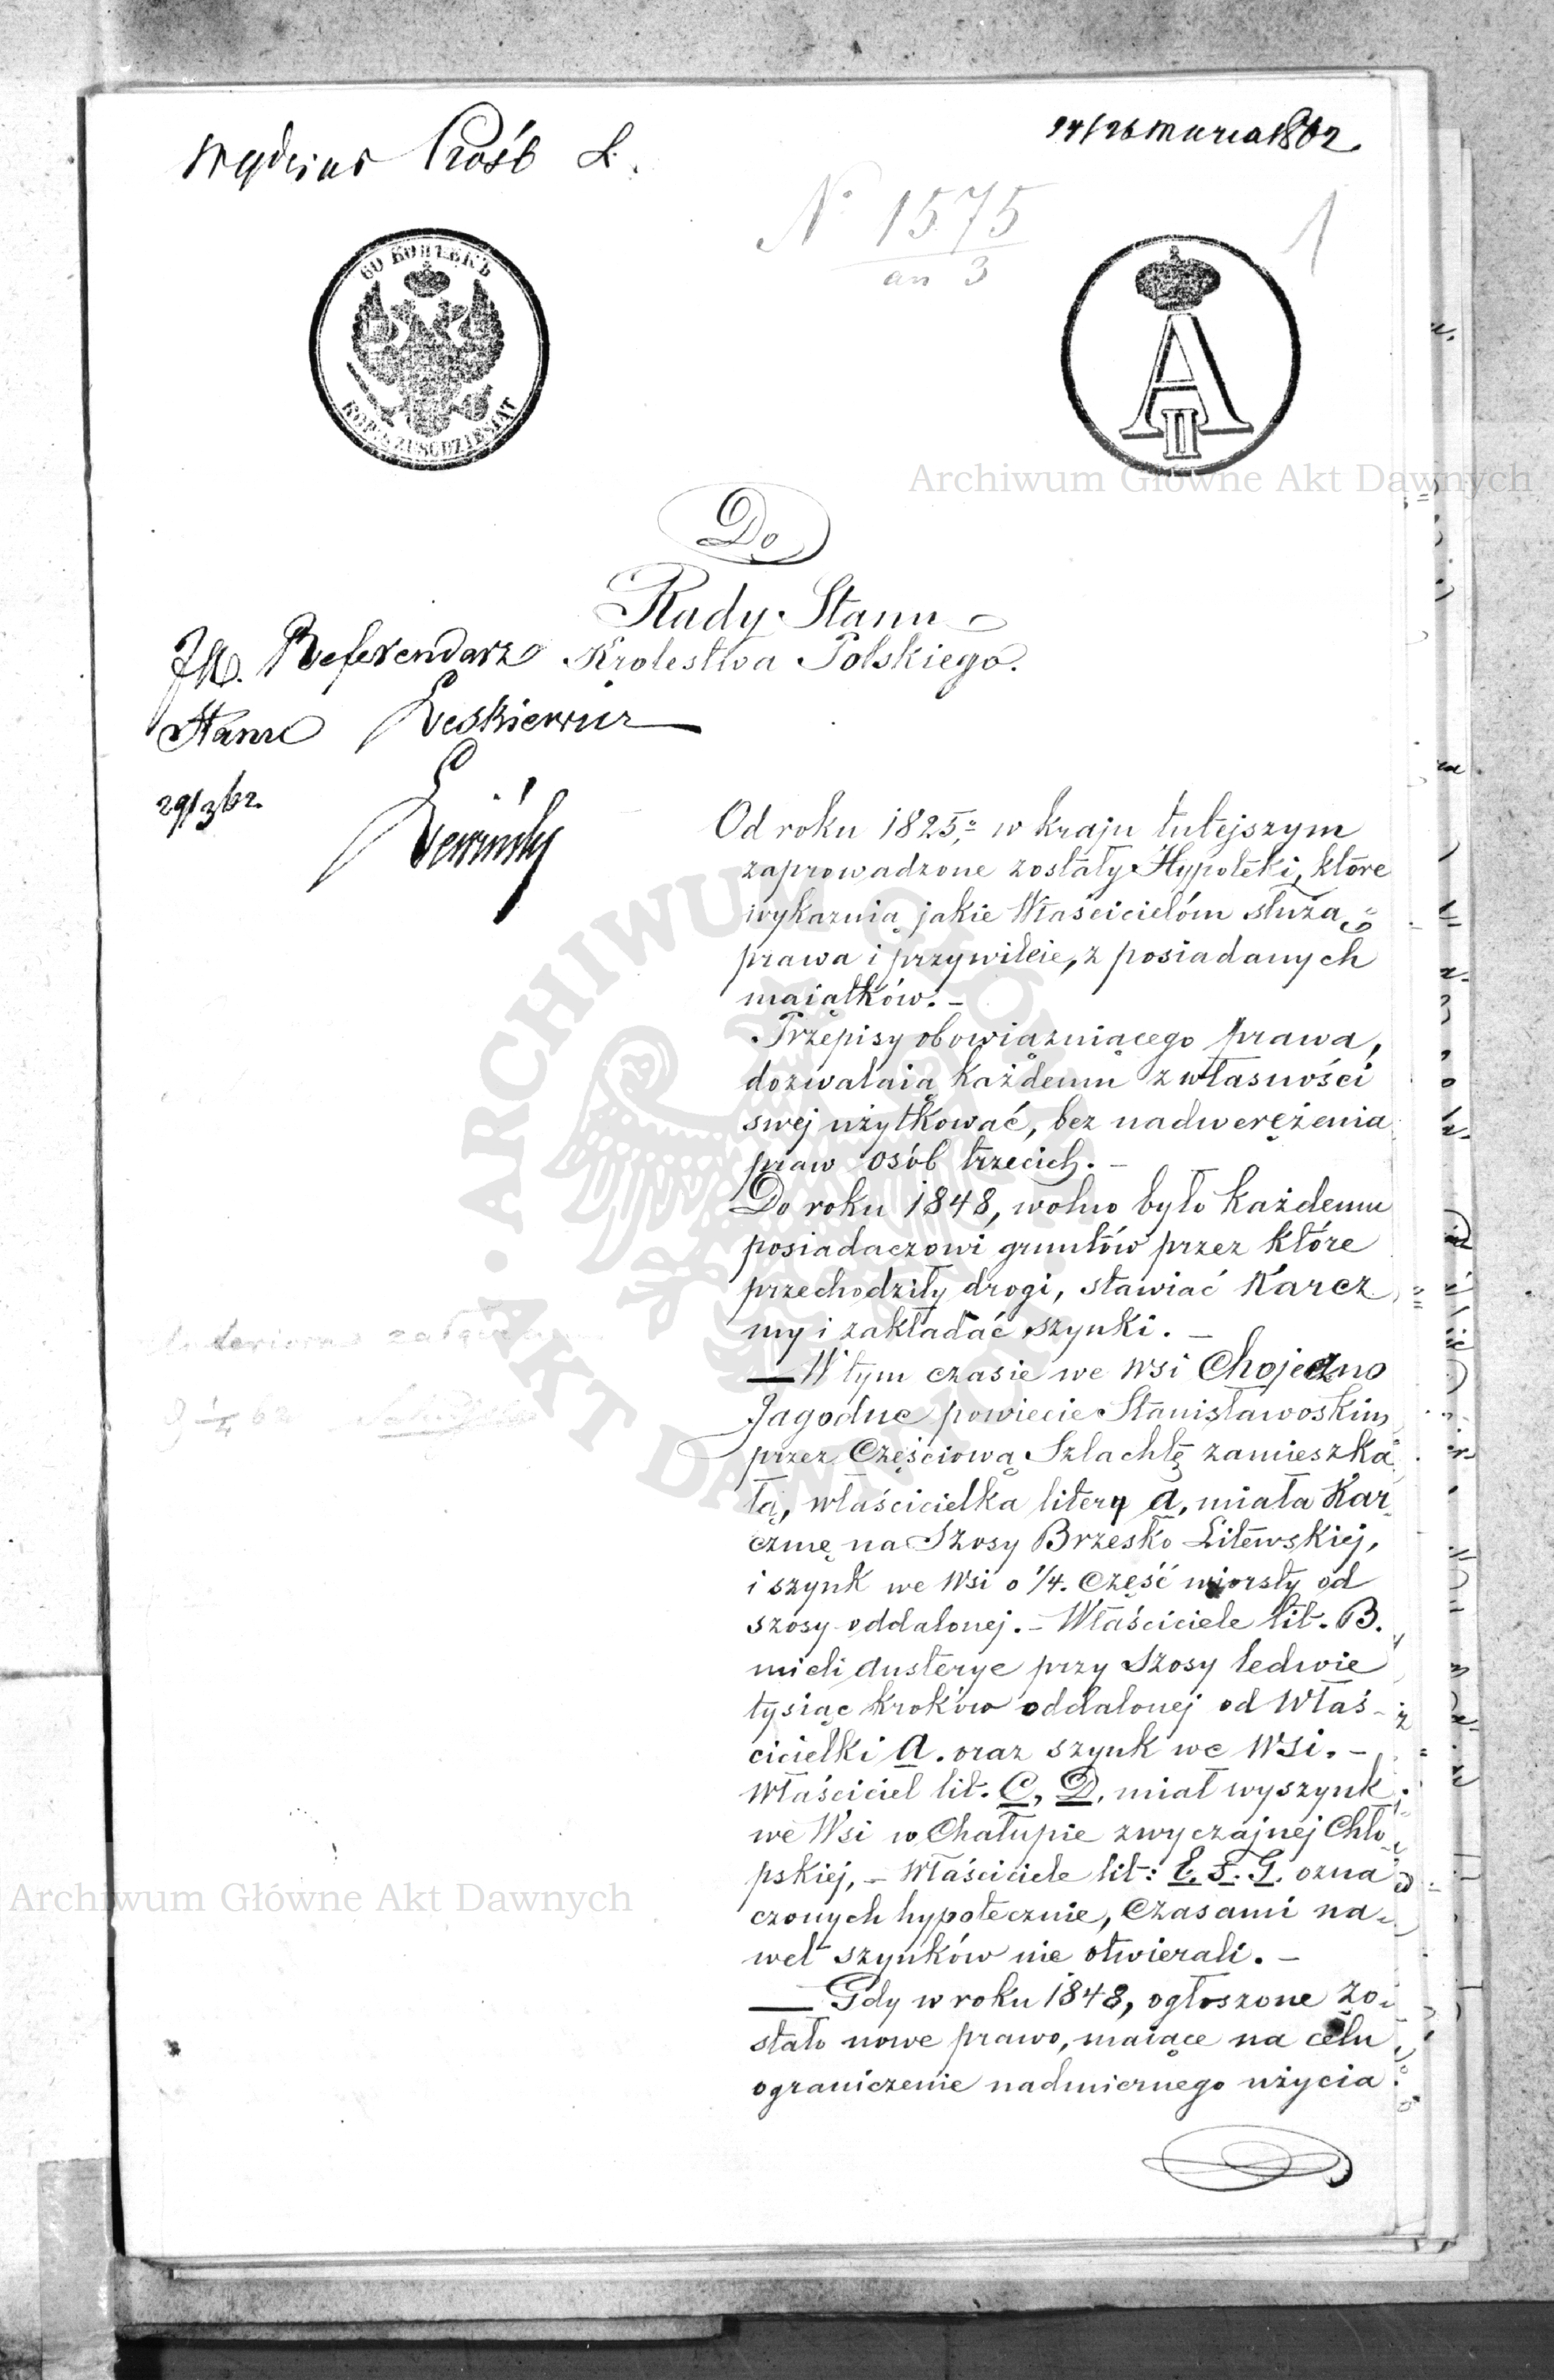 Wydział Próśb
14/26 Marca 1862.
N° 1575
an 3
1
60 КОПѢЕКЪ
KOP. SZESĆDZIESIĄT
A II
Do
Rady Stanu
Królestwa Polskiego.
JW. Referendarz
Stanu
29/3 62.
Od roku 1825,° w kraju tutejszym
zaprowadzone zostały Hypoteki, które
wykazuią jakie Właścicielóm służą
prawa i przywileie, z posiadanych
maiątków. –
Przepisy obowiązuiącego prawa,
dozwalaią każdemu z własności
swej użytkować, bez nadwerężenia
praw osób trzecich. –
Do roku 1848, wolno było każdemu
posiadaczowi gruntów przez które
przechodziły drogi, stawiać Karcz
my i zakładać szynki. –
— W tym czasie we Wsi Chojeczno
Jagodne powiecie Stanisławoskim
przez Częściową Szlachtę zamieszka
łą, właścicielka litery A, miała Kar
czmę na Szosy Brzesko Litewskiej,
i szynk we Wsi o 1/4. Część wiorsty od
szosy oddalonej. – Właściciele lit. B.
mieli Austerye przy Szosy ledwie
tysiąc kroków oddalonej od Właś-
cicielki A. oraz szynk we Wsi. –
Właściciel lit. C, D, miał wyszynk
we Wsi w Chałupie zwyczajnej Chło
pskiej, – Właściciele lit: E. F. G. ozna
czonych hypotecznie, Czasami na-
wet szynków nie otwierali. –
— Gdy w roku 1848, ogłoszone zo-
stało nowe prawo, maiące na celu
ograniczenie nadmiernego użycia
Archiwum Główne Akt Dawnych
Archiwum Główne Akt Dawnych
ARCHIWUM GŁÓWNE AKT DAWNYCH